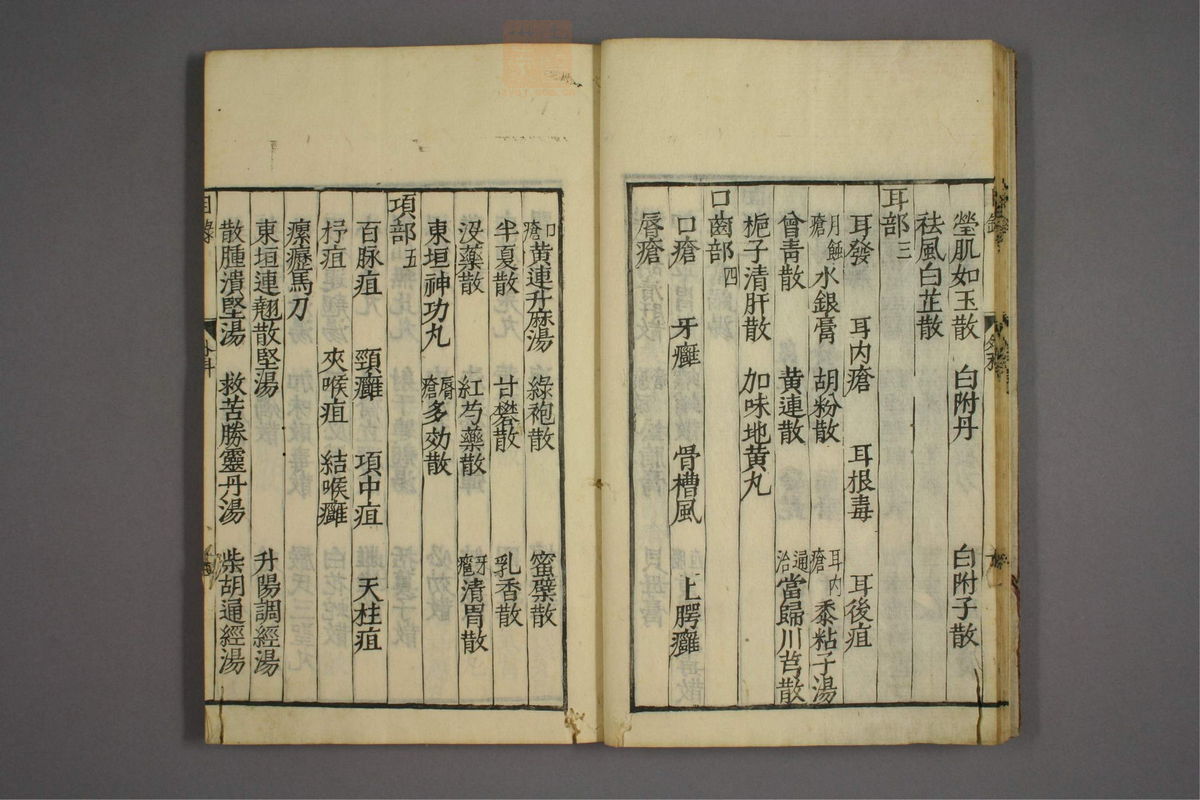 瑩肌如玉散 白附丹 白附子散
祛風白芷散
耳部三
耳發 耳內瘡 耳根毒 耳後疽
月蝕瘡水銀膏 胡粉散 耳內瘡黍粘子湯
曾青散 黄連散 通治當歸川芎散
梔子清肝散 加味地黄丸
口齒部四
口瘡 牙癰 骨槽風 上腭癰
唇瘡
口瘡黄連升麻湯 綠袍散 蜜蘗散
半夏散 甘礬散 乳香散
沒藥散 紅芍藥散 牙癰清胃散
東垣神功丸 唇瘡多効散
項部五
百脉疽 頸癰 項中疽 天柱疽
杼疽 夾喉疽 結喉癰
瘰癧馬刀
東垣連翹散堅湯 升陽調經湯
散腫潰堅湯 救苦勝靈丹湯 柴胡通經湯
目錄 外科